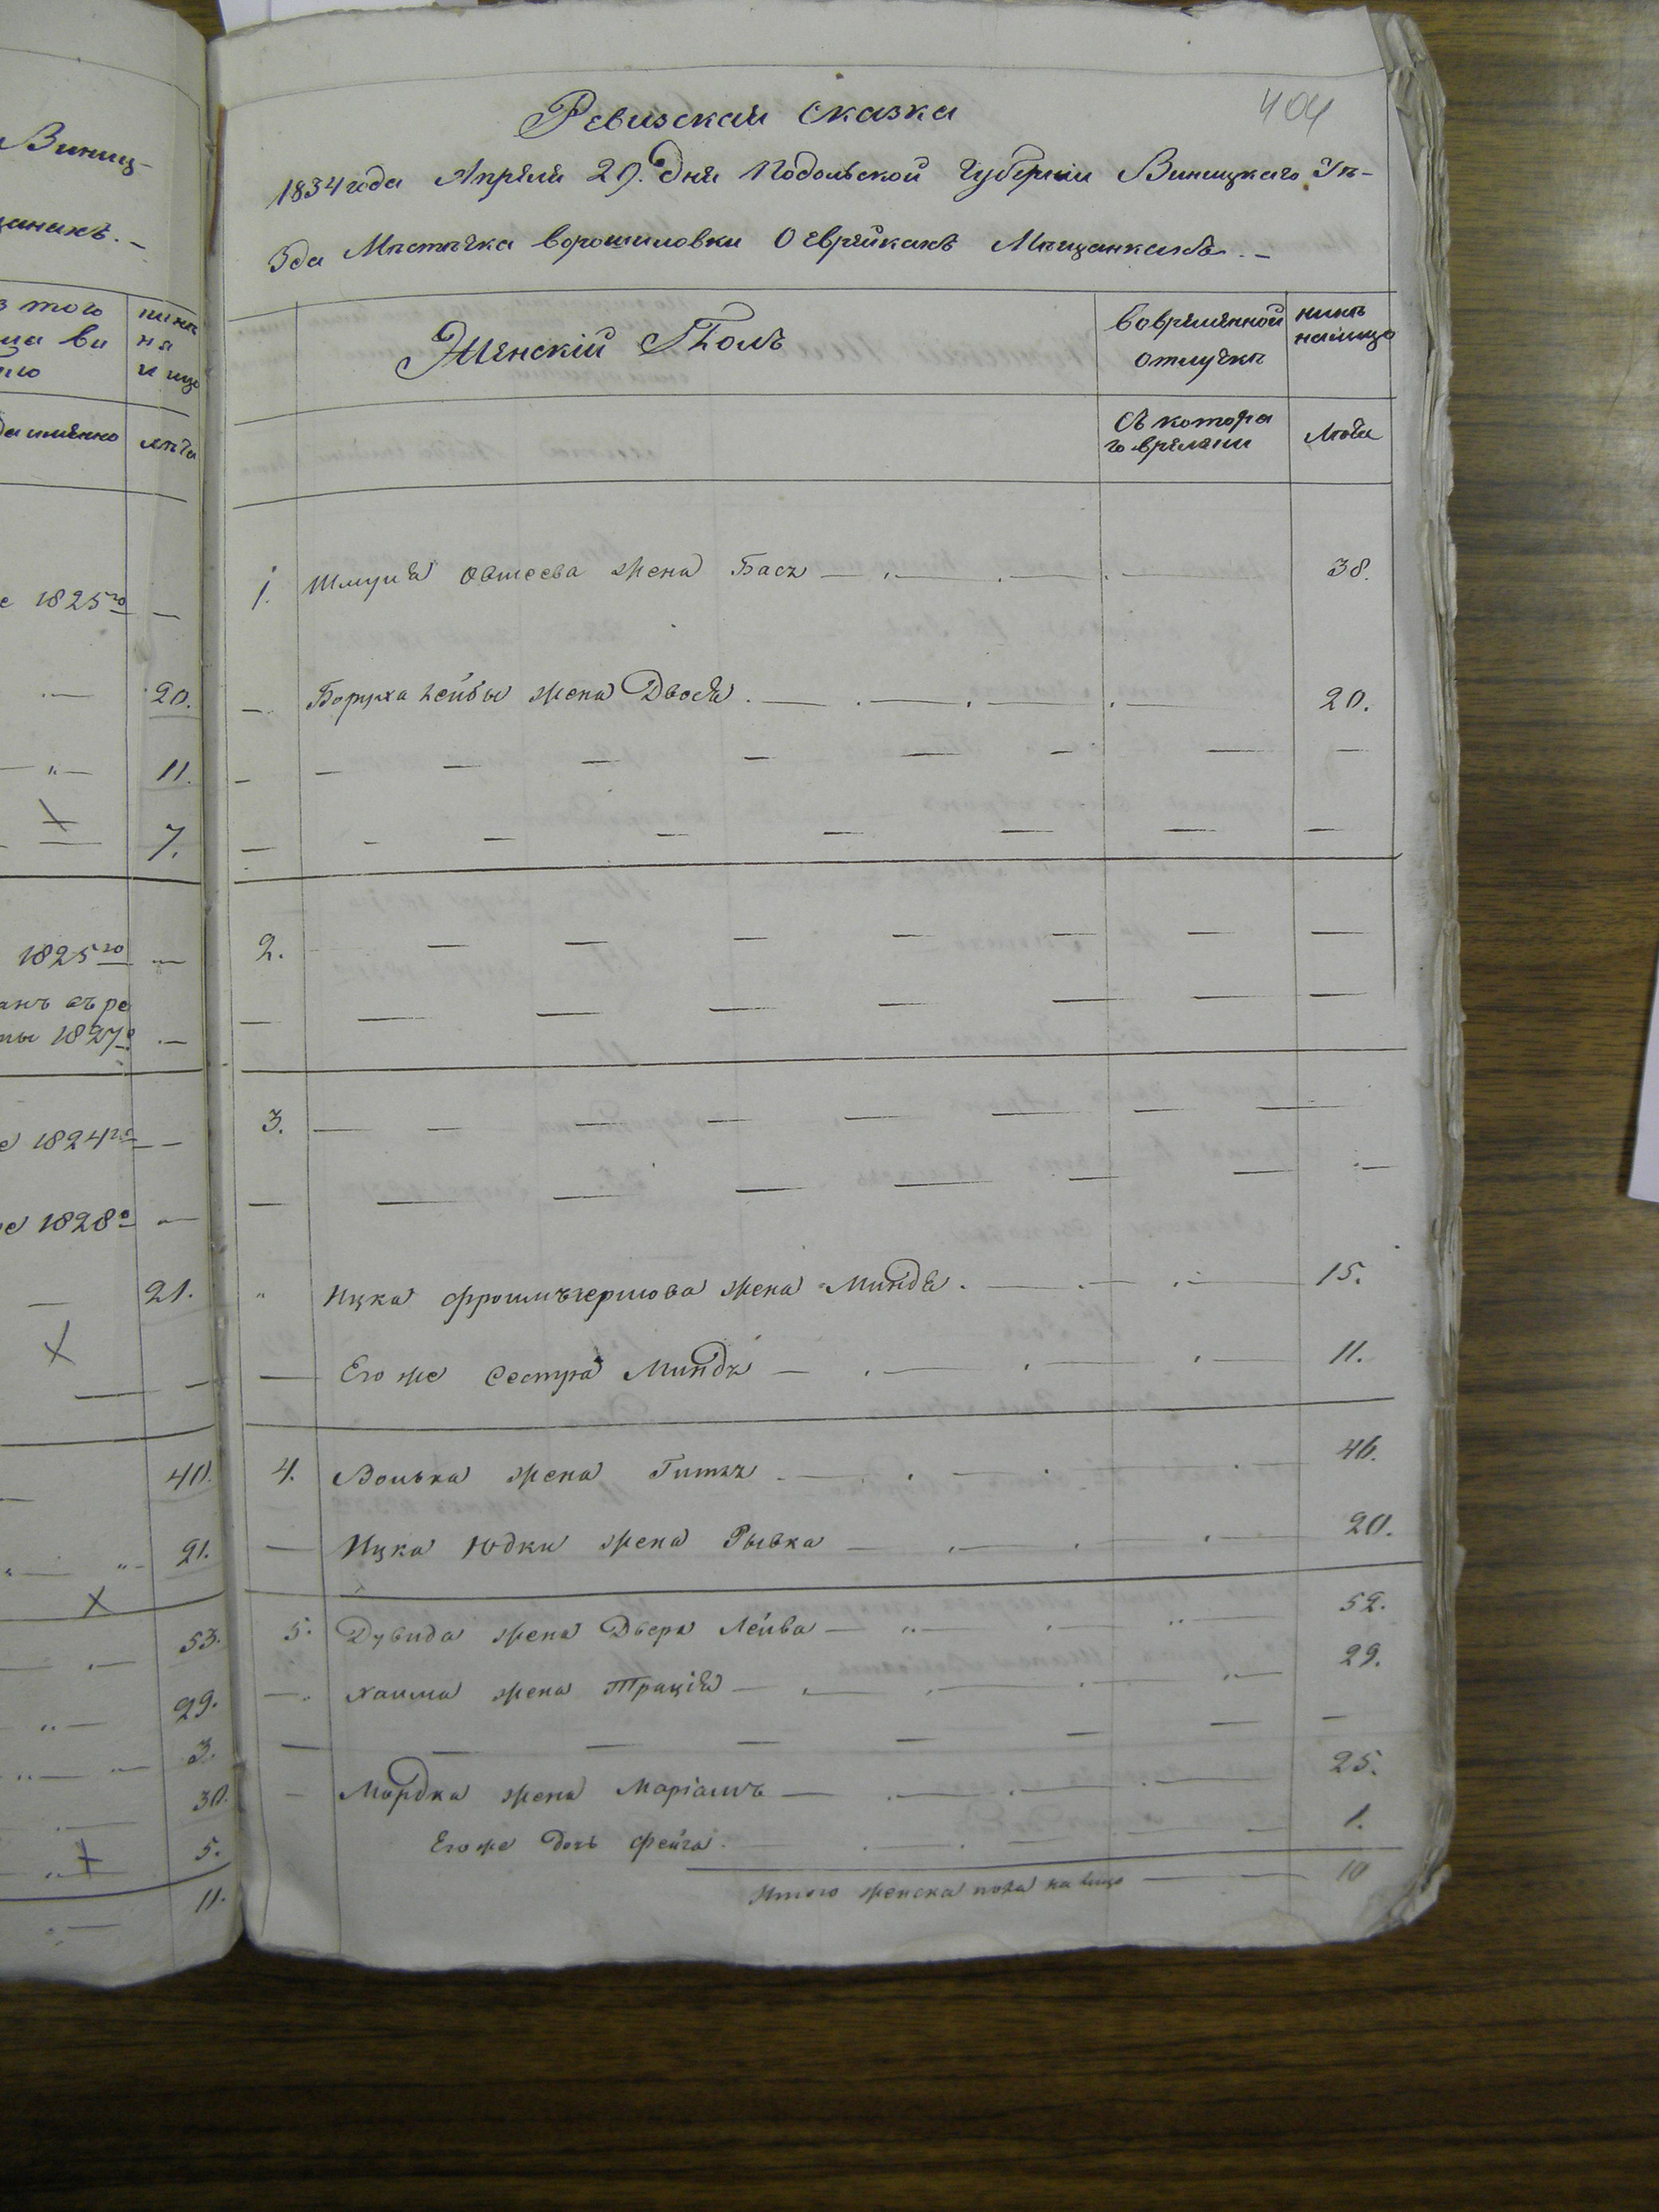 404
Ревизская сказка
1834 года Апреля 29. дня Подольской Губерніи Виницкаго Уѣ-
зда Мѣстечка Ворошиловки О еврейкахъ Мѣщанкахъ. –
Женскій Полъ
во временной отлучкѣ
нынѣ налицо
съ котора
го времени
Лѣта
1. Шмуля Овшеева жена Бася 38.
Боруха Лейбы жена Двося 20.
2.
3.
Ицка Фроимъгершова жена Миндля 15.
Его же сестра Миндя 11.
4. Волька жена Гитля 46.
Ицка Юдки жена Рывка 20.
5. Дувида жена Двера Лейва 52.
Хаима жена Трація 29.
Мордка жена Маріамъ 25.
Его же дочь Фейга 1.
Итого женска пола на лицо 10
Виниц-
щанахъ. –
з того
нынѣ
на
и ицо
да именно
лѣта
1825го
20.
11.
7.
1825го
1827го
1824го
1828го
21.
40.
21.
53.
29.
3.
30.
5.
11.